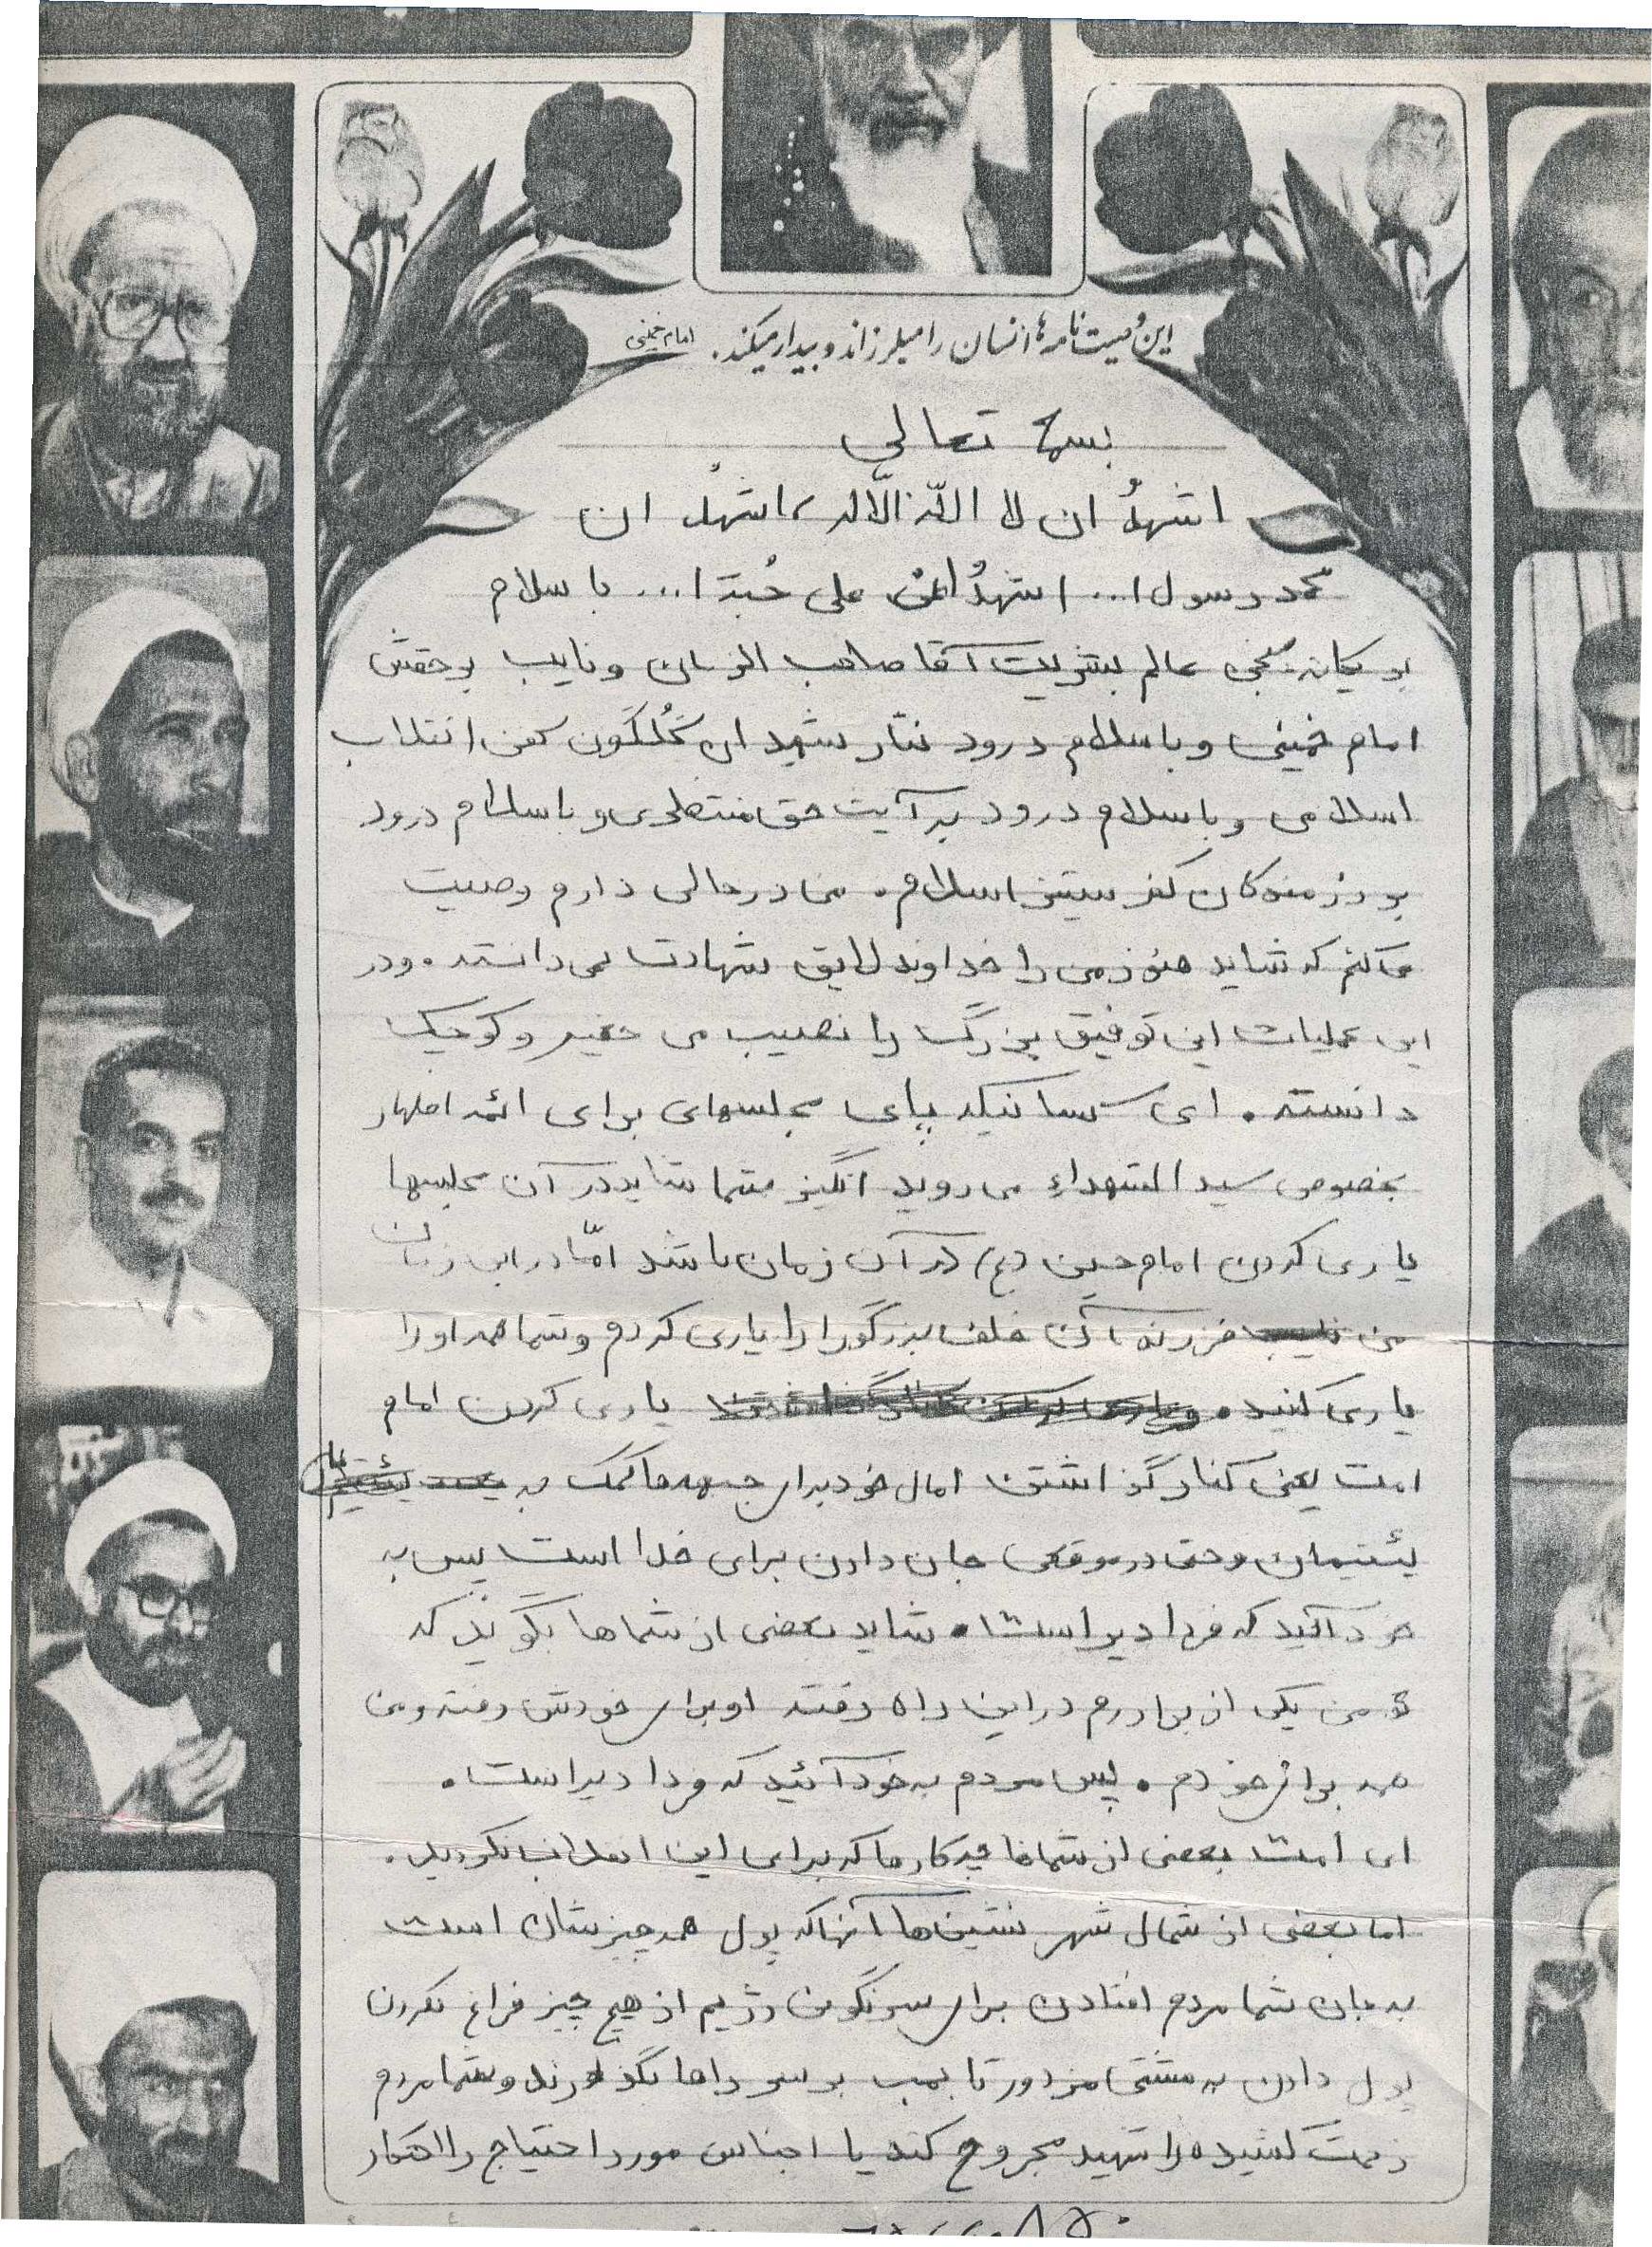 این وصیت نامه ها انسان را میلرزاند و بیدار میکند. امام خمینی
بسمه تعالی
اشهدُ ان لا اللّه الّا له اشهدُ ان
محمد رسول ا... اشهدُ ان علی حُجَة ا... با سلام
بر یگانه منجی عالم بشریت آقا صاحب الزمان و نایب برحقش
امام خمینی و با سلام درود نثار شهیدان گُلگون کفن انقلاب
اسلامی و با سلام درود به آیت حق منتظری و با سلام درود
بر رزمندگان کفر ستیز اسلام. من در حالی دارم وصیت
می کنم که شاید هنوز من را خداوند لایق شهادت نمی دانسته. و در
این عملیات این توفیق بزرگ را نصیب من حقیر و کوچیک
دانسته. ای کسانیکه بپای مجلسهای برای ائمه اطهار
بخصوص سید الشهداء می روید انگیز شما شاید در آن مجلسها
یاری کردن امام حسین (ع) در آن زمان باشد امّا در این زمان
من فرزند آن خلف بزرگوار را یاری کردم و شما همه او را
یاری کنید. یاری کردن امام
امت یعنی کنار گزاشتن امال خود برای جبهه ها کمک به
یتیمان و حتی در موقعی جان دادن برای خدا است پس به
خود آئید که فردا دیر است. شاید بعضی از شماها بگویند که
من یکی از برادرم در این راه رفته او برای خودش رفته و من
همه برای خودم. پس مردم به خود آئید که فردا دیر است.
ای امت بعضی از شماها چه کارها که برای این انقلاب نکردید.
اما بعضی از شمال شهر نشین ها آنها که پول همه چیزشان است
به جان شما مردم افتادن برای سرنگون رژیم از هیچ چیز فراغ نکردن
پول دادن به مشتی مزدور تا بمب بر سر راها بگذارند و شما مردم
زحمت کشیده را شهید مجروح کند یا اجناس مورد احتیاج را احتکار